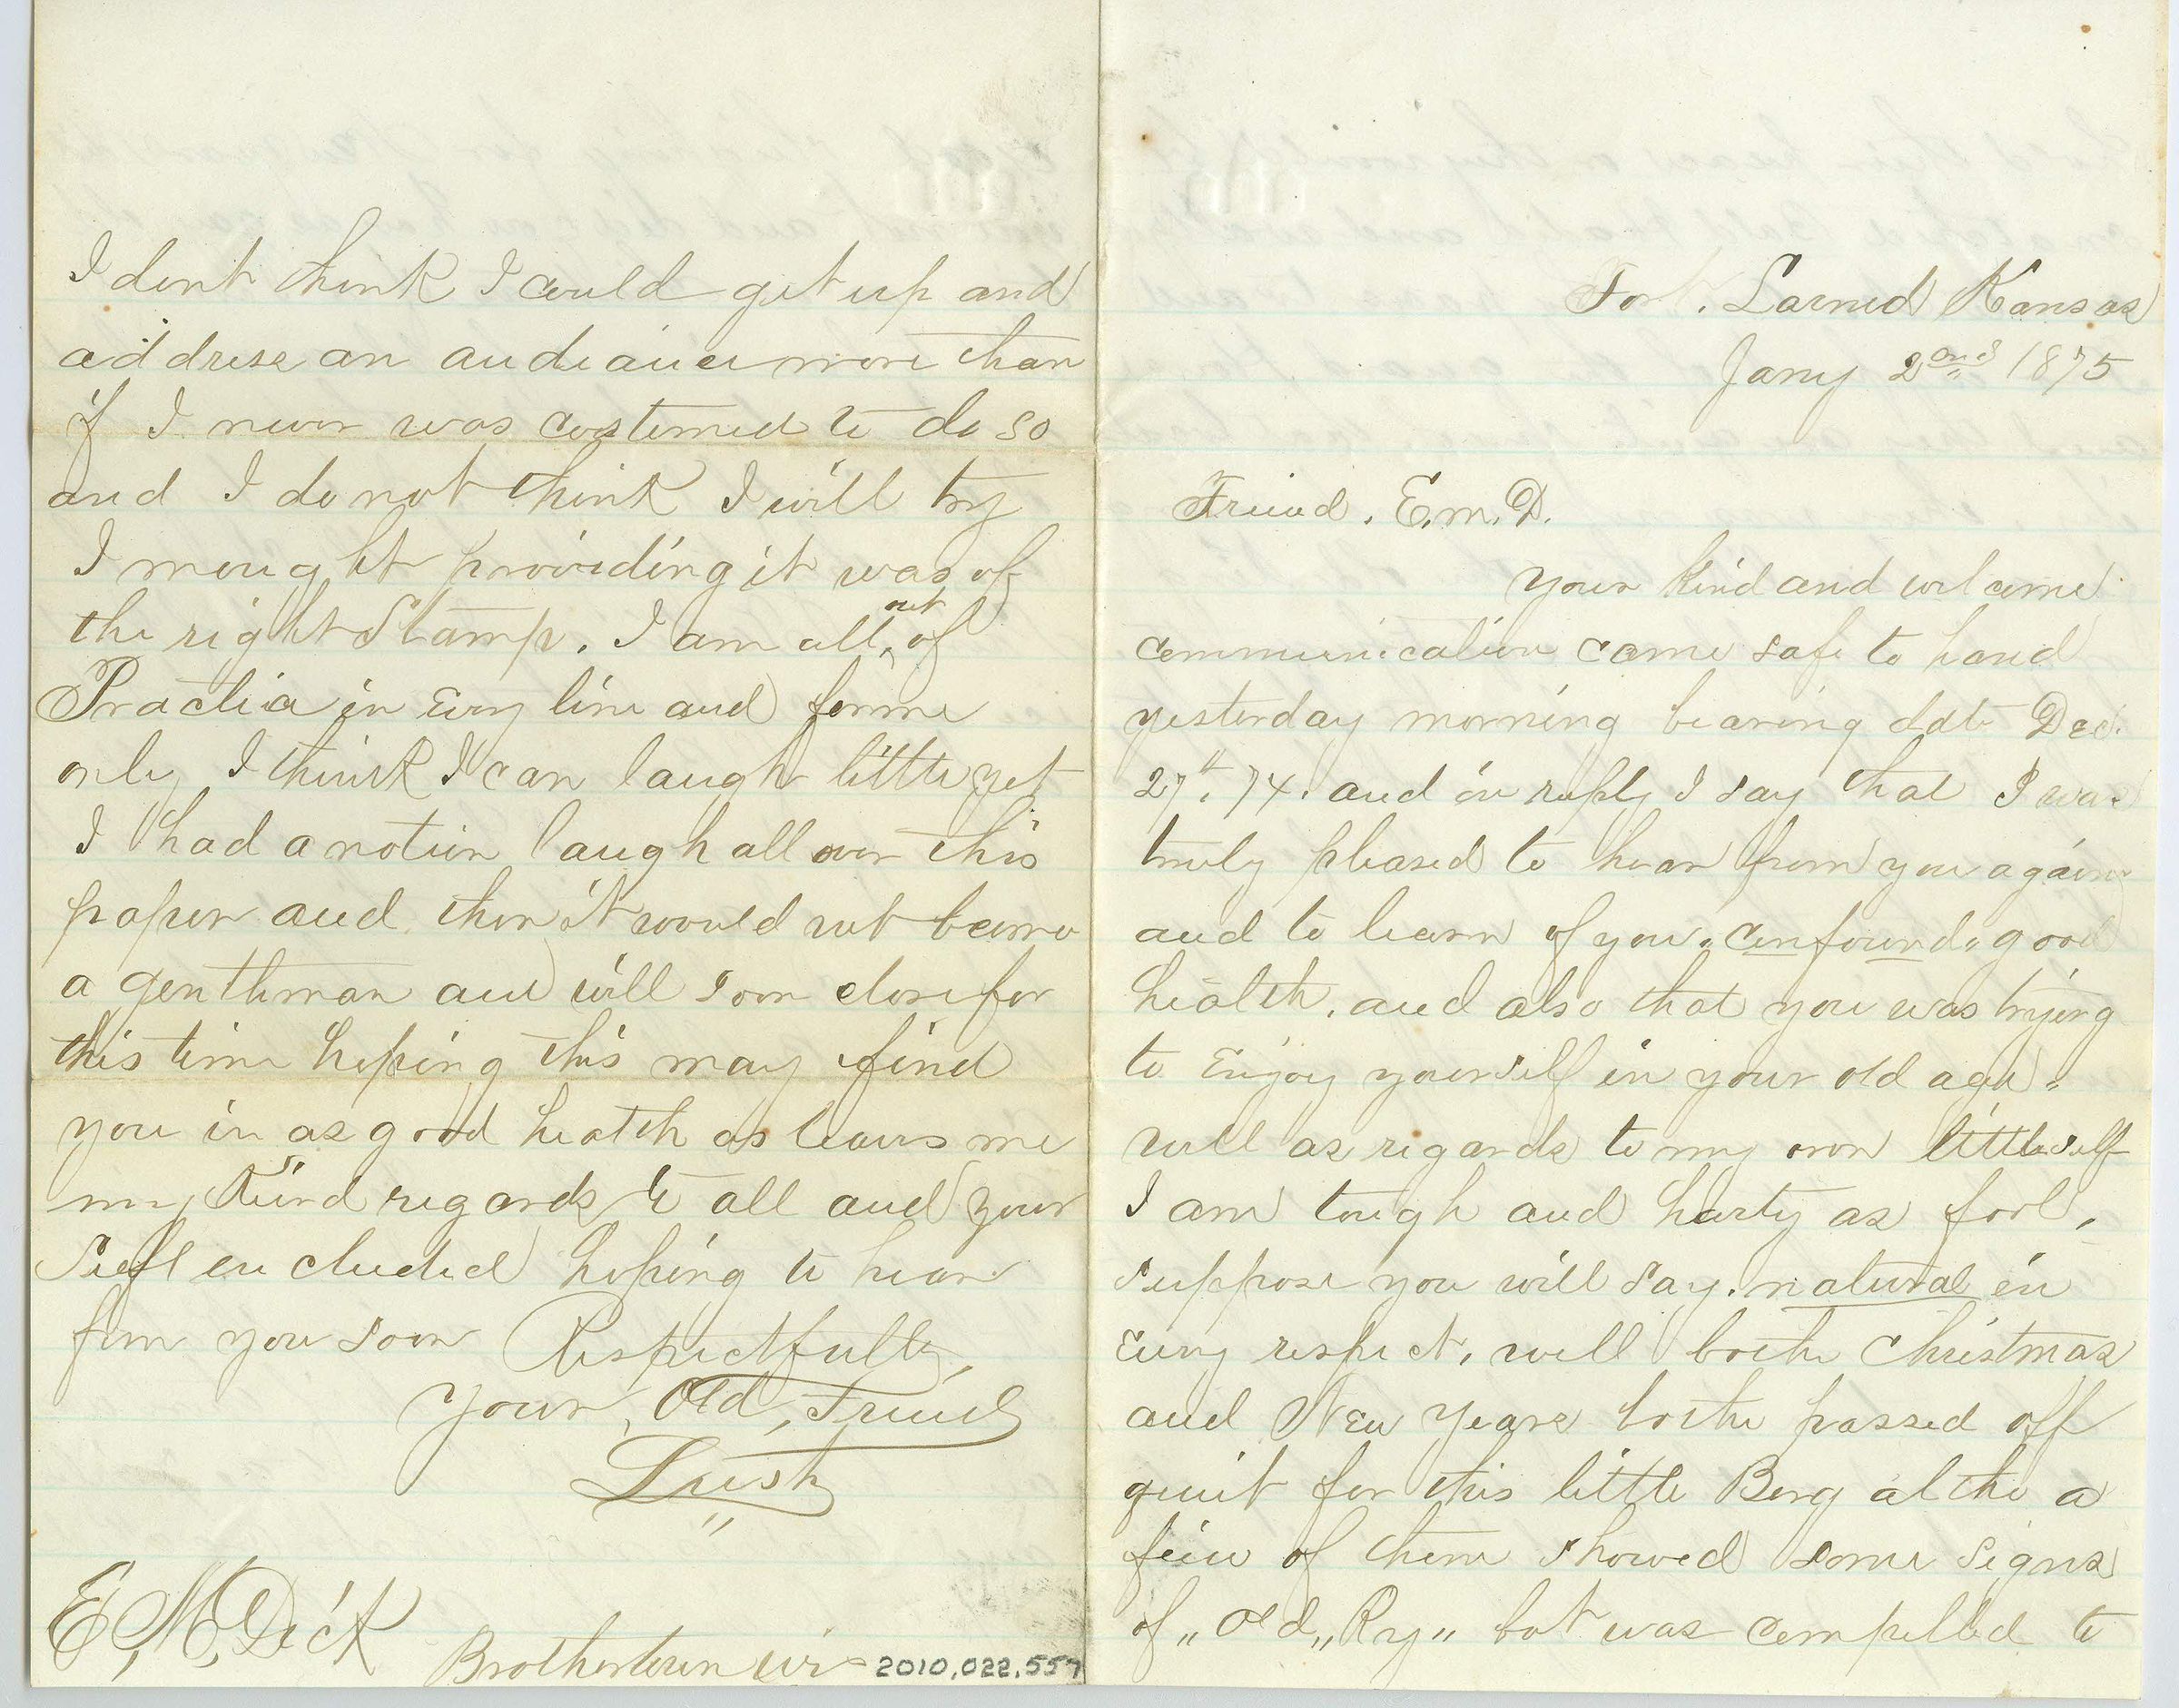 Fort. Larned Kansas
Jany 2ond 1875
Friend. E.M.D.
Your kind and welcome
communication came safe to hand
yesterday morning bearing date Dec.
27th, 74. and in reply I say that I was
truly pleased to hear from you again
and to learn of you "confound" good
health, and also that you was trying
to Enjoy yourself in your old age.
well as regards to my own little self
I am tough and harty as fool,
suppose you will say. natural in
Evry respect, well boath Christmas
and New Years boath passed off
quiet for this little Berg altho a
few of them showed some signs
of "Old" "Ry" but was compelled to
I dont think I could get up and
address an audiance more than
if I never was costomed to do so
and I do not think I will try
I mought providing it was of
the right Stamp. I am all out of
Practice in Evry line and forme
only I think I can laugh little yet
I had a notion laugh all over this
paper and then it would not become
a gentleman and will soon close for
this time hoping this may find
you in as good heatth as leaves me
my kind regards to all and your
self encluded hoping to hear
from you soon Respectfully,
Your, Old, Friend
Lush
E, M, Dick
Brothertown Wis
2010.022.557